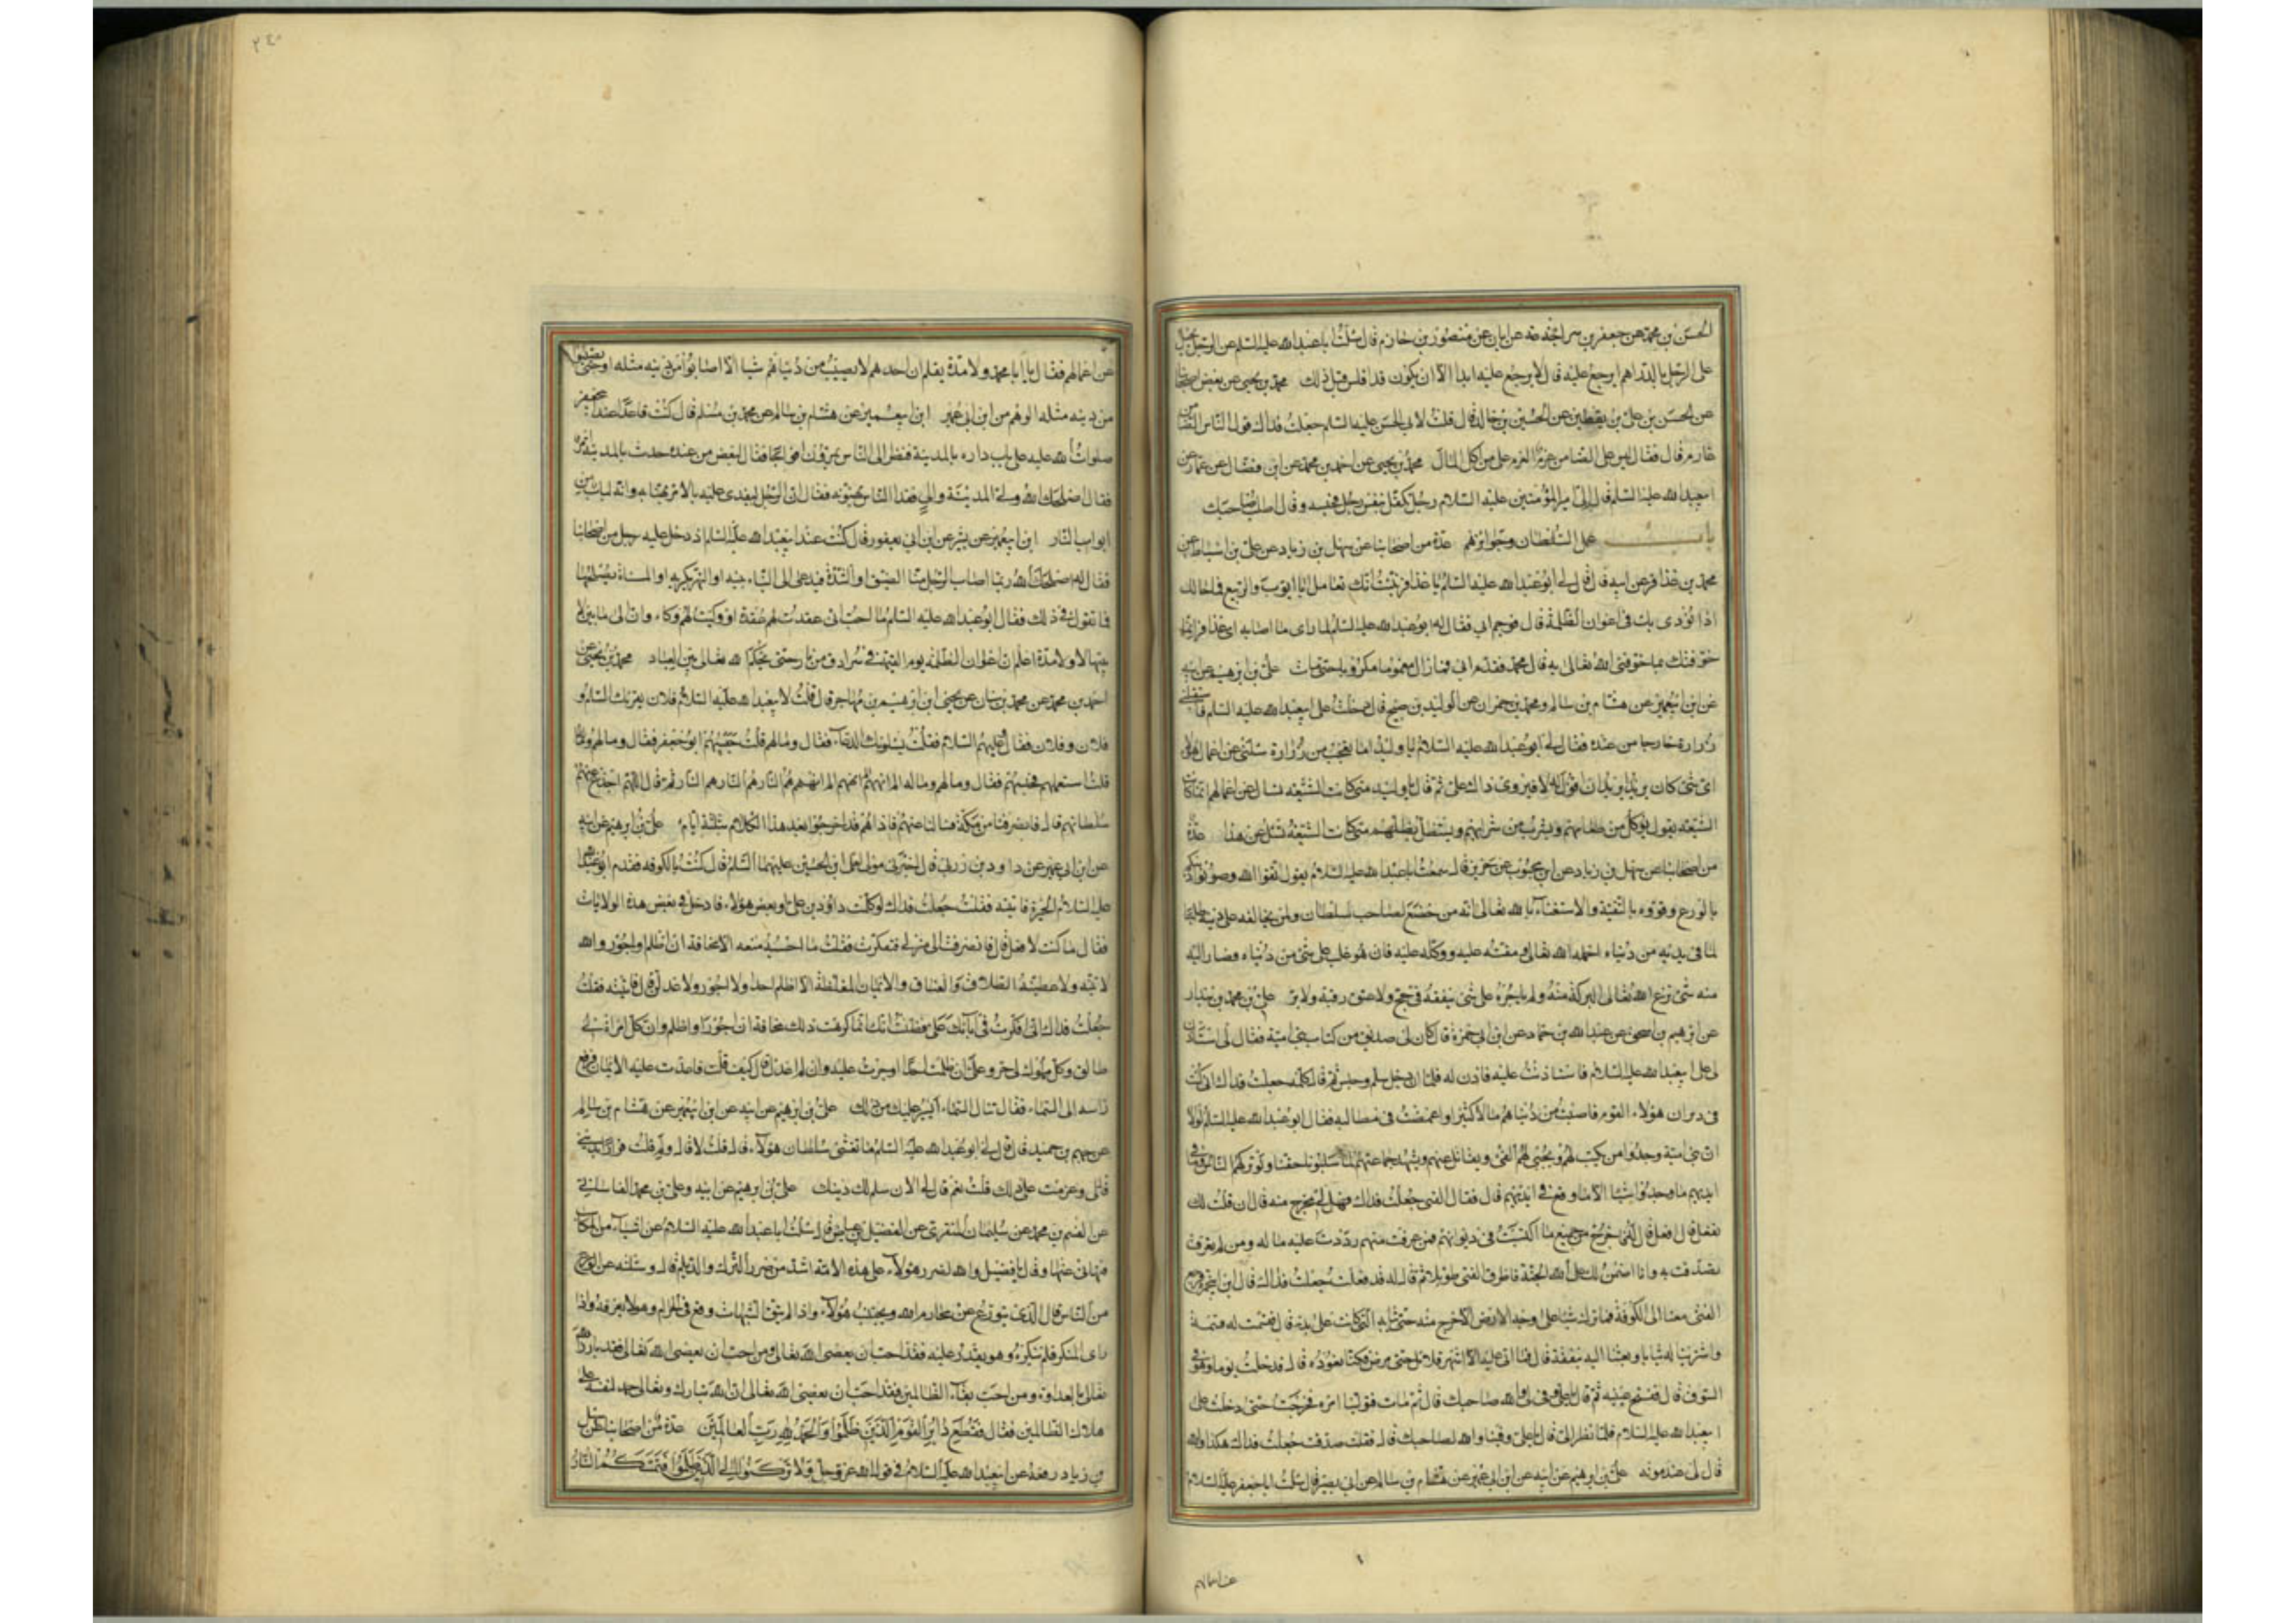 الحسن بن محمد عن جعفر بن سماعة عن ابان عن منصور بن حازم قال سئلت ابا عبد الله عليه السلم عن الرجل يحيل
على الرجل بالدراهم ايرجع عليه قال لا يرجع عليه ابدا الا ان يكون قد افلس قبل ذلك محمد بن يحيى عن بعض اصحابنا
عن الحسن بن علي بن يقطين عن الحسين بن خالد قال قلت لابي الحسن عليه السلم جعلت فداك قول الناس الضامن
غارم قال فقال ليس على الضامن غرم الغرم على من اكل المال محمد بن يحيى عن احمد بن محمد عن ابن فضال عن عمار عن
ابيعبد الله عليه السلم قال اتي امير المؤمنين عليه السلام رجل كفل بنفس رجل فحبسه وقال اطلب صاحبك
باب عمل السلطان وجوائزهم عدة من اصحابنا عن سهل بن زياد عن علي بن اسباط عن
محمد بن عذافر عن ابيه قال قال لي ابو عبد الله عليه السلم يا عذافر نبئت انك تعامل ابا ايوب والربيع فما حالك
اذا نودى بك في اعوان الظلمة قال فوجم ابي فقال له ابو عبد الله عليه السلم لما راى ما اصابه اى عذافر انما
خوفتك بما خوفنى الله تعالى به قال محمد فقدم ابي فما زال مغموما مكروبا حتى مات علي بن ابرهيم عن ابيه
عن ابن ابيعمير عن هشام بن سالم ومحمد بن حمران عن الوليد بن صبيح قال دخلت على ابيعبد الله عليه السلم فاستقبلني
زرارة خارجا من عنده فقال لي ابو عبد الله عليه السلام يا وليد اما تعجب من زرارة سئلنى عن اعمال هؤلاء
اى شئ كان يريد ايريد ان اقول له لا فيروى ذاك على ثم قال يا وليد متى كانت الشيعه تسال عن اعمالهم انما كانت
الشيعه تقول يؤكل من طعامهم ويشرب من شرابهم ويستظل بظلهم متى كانت الشيعة تسئل عن هذا عدة
من اصحابنا عن سهل بن زياد عن ابن محبوب عن حريز قال سمعت ابا عبد الله عليه السلام يقول اتقوا الله وصونوا دينكم
بالورع وقووه بالتقية والاستغناء بالله تعالى انه من خضع لصاحب سلطان ولمن يخالفه على دينه طلبا
لما في يديه من دنياه اخمله الله تعالى ومقته عليه ووكله عليه فان هو غلب على شئ من دنياه وصار اليه
منه شئ نزع الله تعالى البركة منه ولم ياجره على شئ ينفقه في حج ولا عتق رقبة ولا بر علي بن محمد بن بندار
عن ابرهيم بن اسحق عن عبد الله بن حماد عن ابن ابي حمزة قال كان لى صديق من كتاب بني امية فقال لى استاذن
لى على ابيعبد الله عليه السلام فاستاذنت عليه فاذن له فلما ان دخل سلم وجلس ثم قال جعلت فداك انى كنت
في ديوان هؤلاء القوم فاصبت من دنياهم مالا كثيرا واغمضت في مطالبه فقال ابو عبد الله عليه السلم لولا
ان بني امية وجدوا من يكتب لهم ويجبى لهم الفئ ويقاتل عنهم ويشهد جماعتهم لما سلبونا حقنا ولو تركهم الناس وما في
ايديهم ما وجدوا شيئا الا ما وقع في ايديهم قال فقال الفتى جعلت فداك فهل لي مخرج منه قال ان قلت لك
تفعل قال افعل قال له فاخرج من جميع ما اكتسبت في ديوانهم فمن عرفت منهم رددت عليه ماله ومن لم تعرف
تصدقت به وانا اضمن لك على الله الجنة فاطرق الفتى طويلا ثم قال له قد فعلت جعلت فداك قال ابن ابيحمزة فرجع
الفتى معنا الى الكوفة فما ترك شيئا على وجه الارض الا خرج منه حتى ثيابه التى كانت على بدنه قال فقسمت له قسمة
واشترينا له ثيابا وبعثنا اليه بنفقة قال فما اتى عليه الا اشهر قلائل حتى مرض فكنا نعوده قال فدخلت يوما وهو في
السوق قال ففتح عينيه ثم قال يا علي وفى لى والله صاحبك قال ثم مات فتولينا امره فخرجت حتى دخلت على
ابيعبد الله عليه السلام فلما نظر الى قال يا علي وفينا والله لصاحبك قال فقلت صدقت جعلت فداك هكذا والله
قال لى عند موته علي بن ابرهيم عن ابيه عن ابن ابي عمير عن هشام بن سالم عن ابي بصير قال سئلت ابا جعفر عليه السلام
عن اعمالهم
٢٤٠
عن اعمالهم فقال يا ابا محمد لا ولا مدة بقلم ان احدهم لا يصيب من دنياهم شيئا الا اصابوا من دينه مثله او حتى يصيبوا
من دينه مثله الوهم من ابن ابي عمير ابن ابيعمير عن هشام بن سالم عن محمد بن مسلم قال كنت قاعدا عند ابي جعفر
صلوات الله عليه على باب داره بالمدينة فنظر الى الناس يمرون افواجا فقال لبعض من عنده حدث بالمدينة امر
فقال اصلحك الله ولي المدينة وال فغدا الناس يهنؤنه فقال ان الرجل ليغدى عليه بالامر يهنا به وانه لباب من
ابواب النار ابن ابيعمير عن بشير عن ابن ابي يعفور قال كنت عند ابيعبد الله عليه السلم اذ دخل عليه رجل من اصحابنا
فقال له اصلحك الله ربما اصاب الرجل منا الضيق او الشدة فيدعى الى البناء يبنيه او النهر يكريه او المسناة يصلحها
فما تقول في ذلك فقال ابو عبد الله عليه السلم ما احب انى عقدت لهم عقدة او وكيت لهم وكاء وان لى ما بين لا
بتيها لا ولا مدة بقلم ان اعوان الظلمه يوم القيمة في سرادق من نار حتى يحكم الله تعالى بين العباد محمد بن يحيى عن
احمد بن محمد عن محمد بن سنان عن يحيى ابن ابرهيم بن مهاجر قال قلت لابيعبد الله عليه السلام فلان يقرئك السلم و
فلان وفلان فقال وعليهم السلام فقلت يسئلونك الدعاء فقال وما لهم قلت حبسهم ابو جعفر فقال وما لهم وماله
قلت استعملهم فحبسهم فقال وما لهم وماله الم انههم الم انههم الم انههم هم النار هم النار هم النار ثم قال اللهم اجدع عنهم
سلطانهم قال فانصرفنا من مكة فسالنا عنهم فاذا هم قد اخرجوا بعد هذا الكلام بثلثة ايام علي بن ابرهيم عن ابيه
عن ابن ابي عمير عن داود بن زربي قال اخبرنى مولى لعلي ابن الحسين عليهما السلم قال كنت بالكوفه فقدم ابو عبد الله
عليه السلام الحيرة فاتيته فقلت جعلت فداك لو كلمت داود بن علي او بعض هؤلاء فادخل في بعض هذه الولايات
فقال ما كنت لافعل قال فانصرفت الى منزلي فتفكرت فقلت ما احسبه منعه الا مخافة ان اظلم او اجور والله
لاتينه ولاعطينه الطلاق والعتاق والايمان المغلظة الا اظلم احدا ولا اجور ولاعدلن قال فاتيته فقلت
جعلت فداك انى فكرت في ابائك على فظننت انك انما كرهت ذلك مخافة ان اجور او اظلم وان كل امراة لي
طالق وكل مملوك لى حر وعلى ان ظلمت احدا او جرت عليه وان لم اعدل قال كيف قلت فاعدت عليه الايمان فرفع
راسه الى السماء فقال تناول السماء ايسر عليك من ذلك علي بن ابرهيم عن ابيه عن ابن ابيعمير عن هشام بن سالم
عن جهم بن حميد قال قال لي ابو عبد الله عليه السلم اما تغشى سلطان هؤلاء قال قلت لا قال ولم قلت فرارا بدينى
قال وعزمت على ذلك قلت نعم قال لي الان سلم لك دينك علي بن ابرهيم عن ابيه وعلي بن محمد القاساني
عن القسم بن محمد عن سليمان المنقرى عن الفضيل بن عياض قال سئلت ابا عبد الله عليه السلام عن اشياء من المكاسب
فنهانى عنها وقال يا فضيل والله لضرر هؤلاء على هذه الامة اشد من ضرر الترك والديلم قال وسئلته عن الورع
من الناس قال الذى يتورع عن محارم الله ويجتنب هؤلاء واذا لم يتق الشبهات وقع في الحرام وهو لا يعرفه واذا
راى المنكر فلم ينكره وهو يقدر عليه فقد احب ان يعصى الله تعالى ومن احب ان يعصى الله تعالى فقد بارز الله
تعالى بالعداوة ومن احب بقاء الظالمين فقد احب ان يعصى الله تعالى ان الله تبارك وتعالى حمد نفسه على
هلاك الظالمين فقال فقطع دابر القوم الذين ظلموا والحمد لله رب العالمين عدة من اصحابنا عن سهل
بن زياد رفعه عن ابيعبد الله عليه السلام في قول الله عز وجل ولا تركنوا الى الذين ظلموا فتمسكم النار